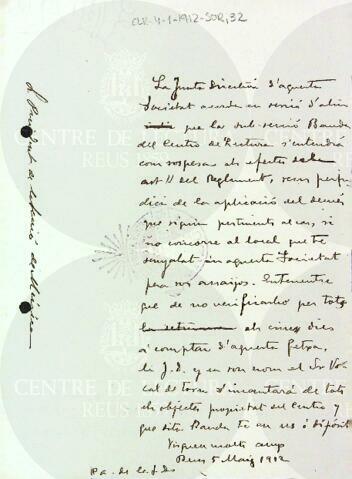 CLR-4-1-1912-SOR,32
La Junta Directiva d'aquesta
Societat acorda en sessió d'ahir
que la sub-secció Banda
del Centro de Lectura s'entendrá
com sospesa als efectes
art 11 del Reglament, sens perju-
dici de la aplicació del demés
que siguin pertinents al cas, si
no concorre al local que te
senyalat en aquesta Societat
pera sos ensaijos. Entenentse
que de no verificarho per tot
als cinch dies
á comptar d'aquesta fetxa,
la J. D. y en son nom el Sr Vo-
cal de torn s'incautará de tots
els objectes propietat del Centro y
que dita Banda te en us ó dipósit
Visquen molts anys
Reus 5 Maig 1912
P. a. de la J. D.
President de la
CENTRE DE LECTURA
REUS
CENTRE DE LECTURA
REUS